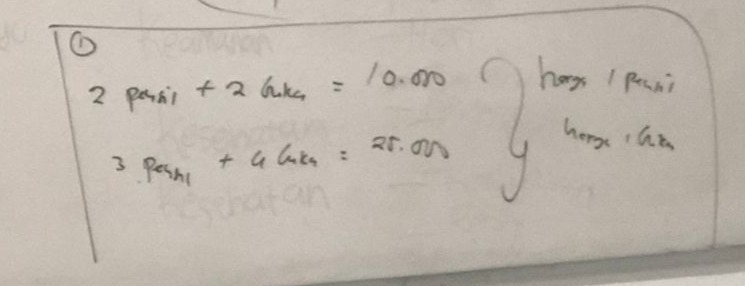 ①
2 pensil + 2 buku = 10.000
harga 1 pensil
3 pensil + 4 buku = 25.000
harga 1 buku
Keamanan
Kesehatan
Kesehatan